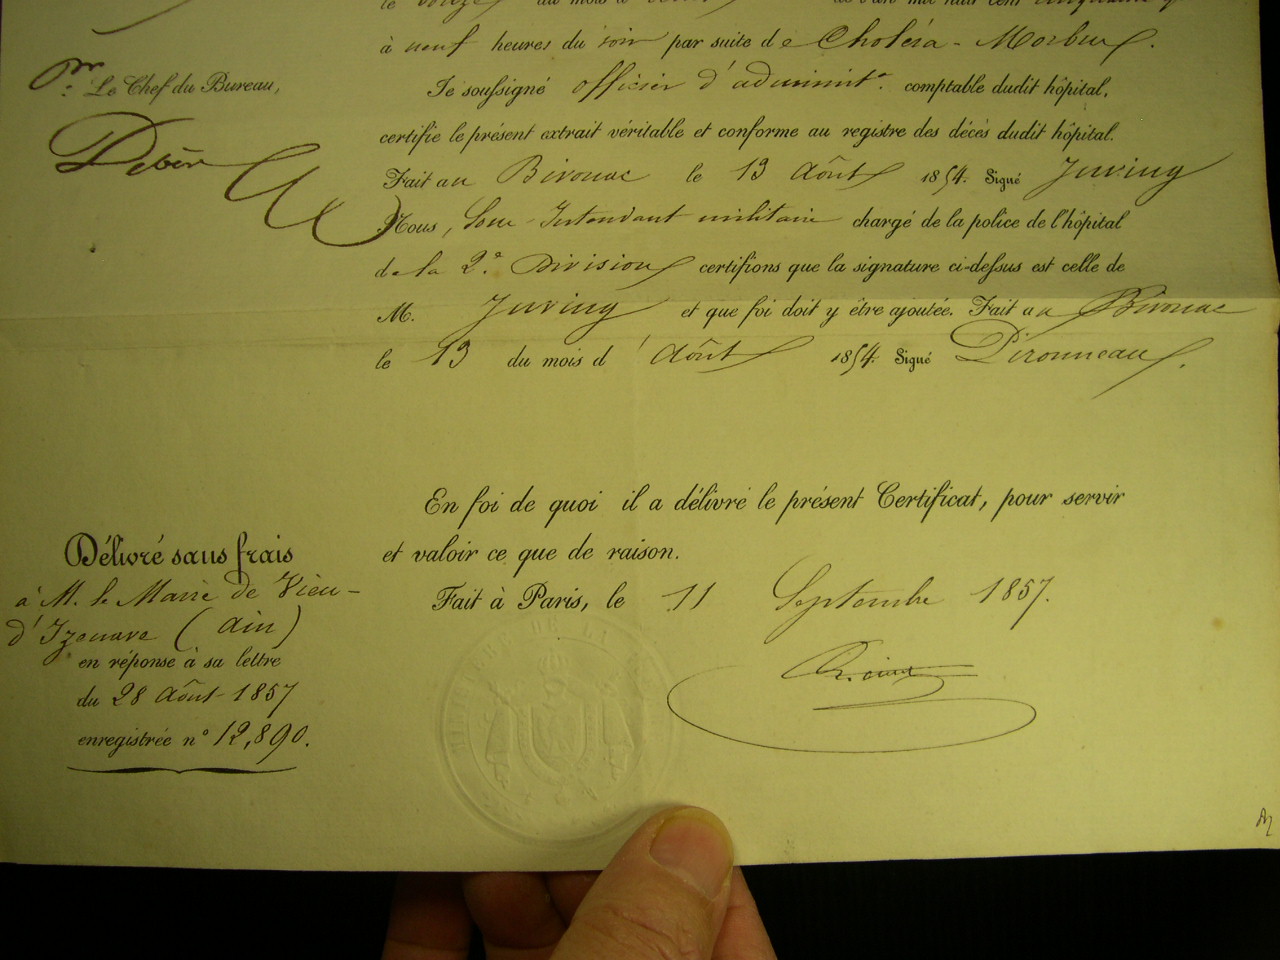 le douze du mois d de l'an mil huit cent cinquante
à neuf heures du soir par suite de Choléra-Morbus.
Je soussigné officier d'adminit.on comptable dudit hôpital,
certifie le présent extrait véritable et conforme au registre des décès dudit hôpital.
Fait au Bivouac le 13 Août 1854. Signé Juving
Nous, Sous Intendant militaire chargé de la police de l'hôpital
de la 2.e Division certifions que la signature ci-dessus est celle de
M. Juving et que foi doit y être ajoutée. Fait au Bivouac
le 13 du mois d'Août 1854. Signé Pironneau.
Pr. Le Chef du Bureau,
En foi de quoi il a délivré le présent Certificat, pour servir
et valoir ce que de raison.
Fait à Paris, le 11 Septembre 1857.
Délivré sans frais
à M. le Maire de Vieu-
d'Izenave (Ain)
en réponse à sa lettre
du 28 Août 1857
enregistrée n° 12,890.